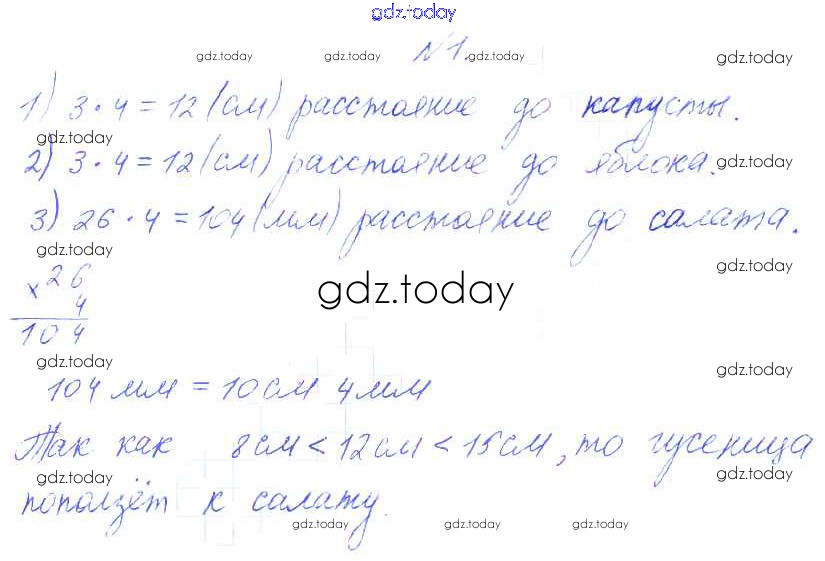 gdz.today
№1.
gdz.today gdz.today gdz.today gdz.today
1) 3·4=12(см) расстояние до капусты.
gdz.today
2) 3·4=12(см) расстояние до яблока.
gdz.today
3) 26·4=104(мм) расстояние до салата.
gdz.today
gdz.today
×26
4
104
gdz.today
gdz.today
gdz.today
104 мм = 10 см 4 мм
Так как 8 см < 12 см < 15 см, то гусеница
gdz.today gdz.today
поползёт к салату.
gdz.today gdz.today gdz.today gdz.today